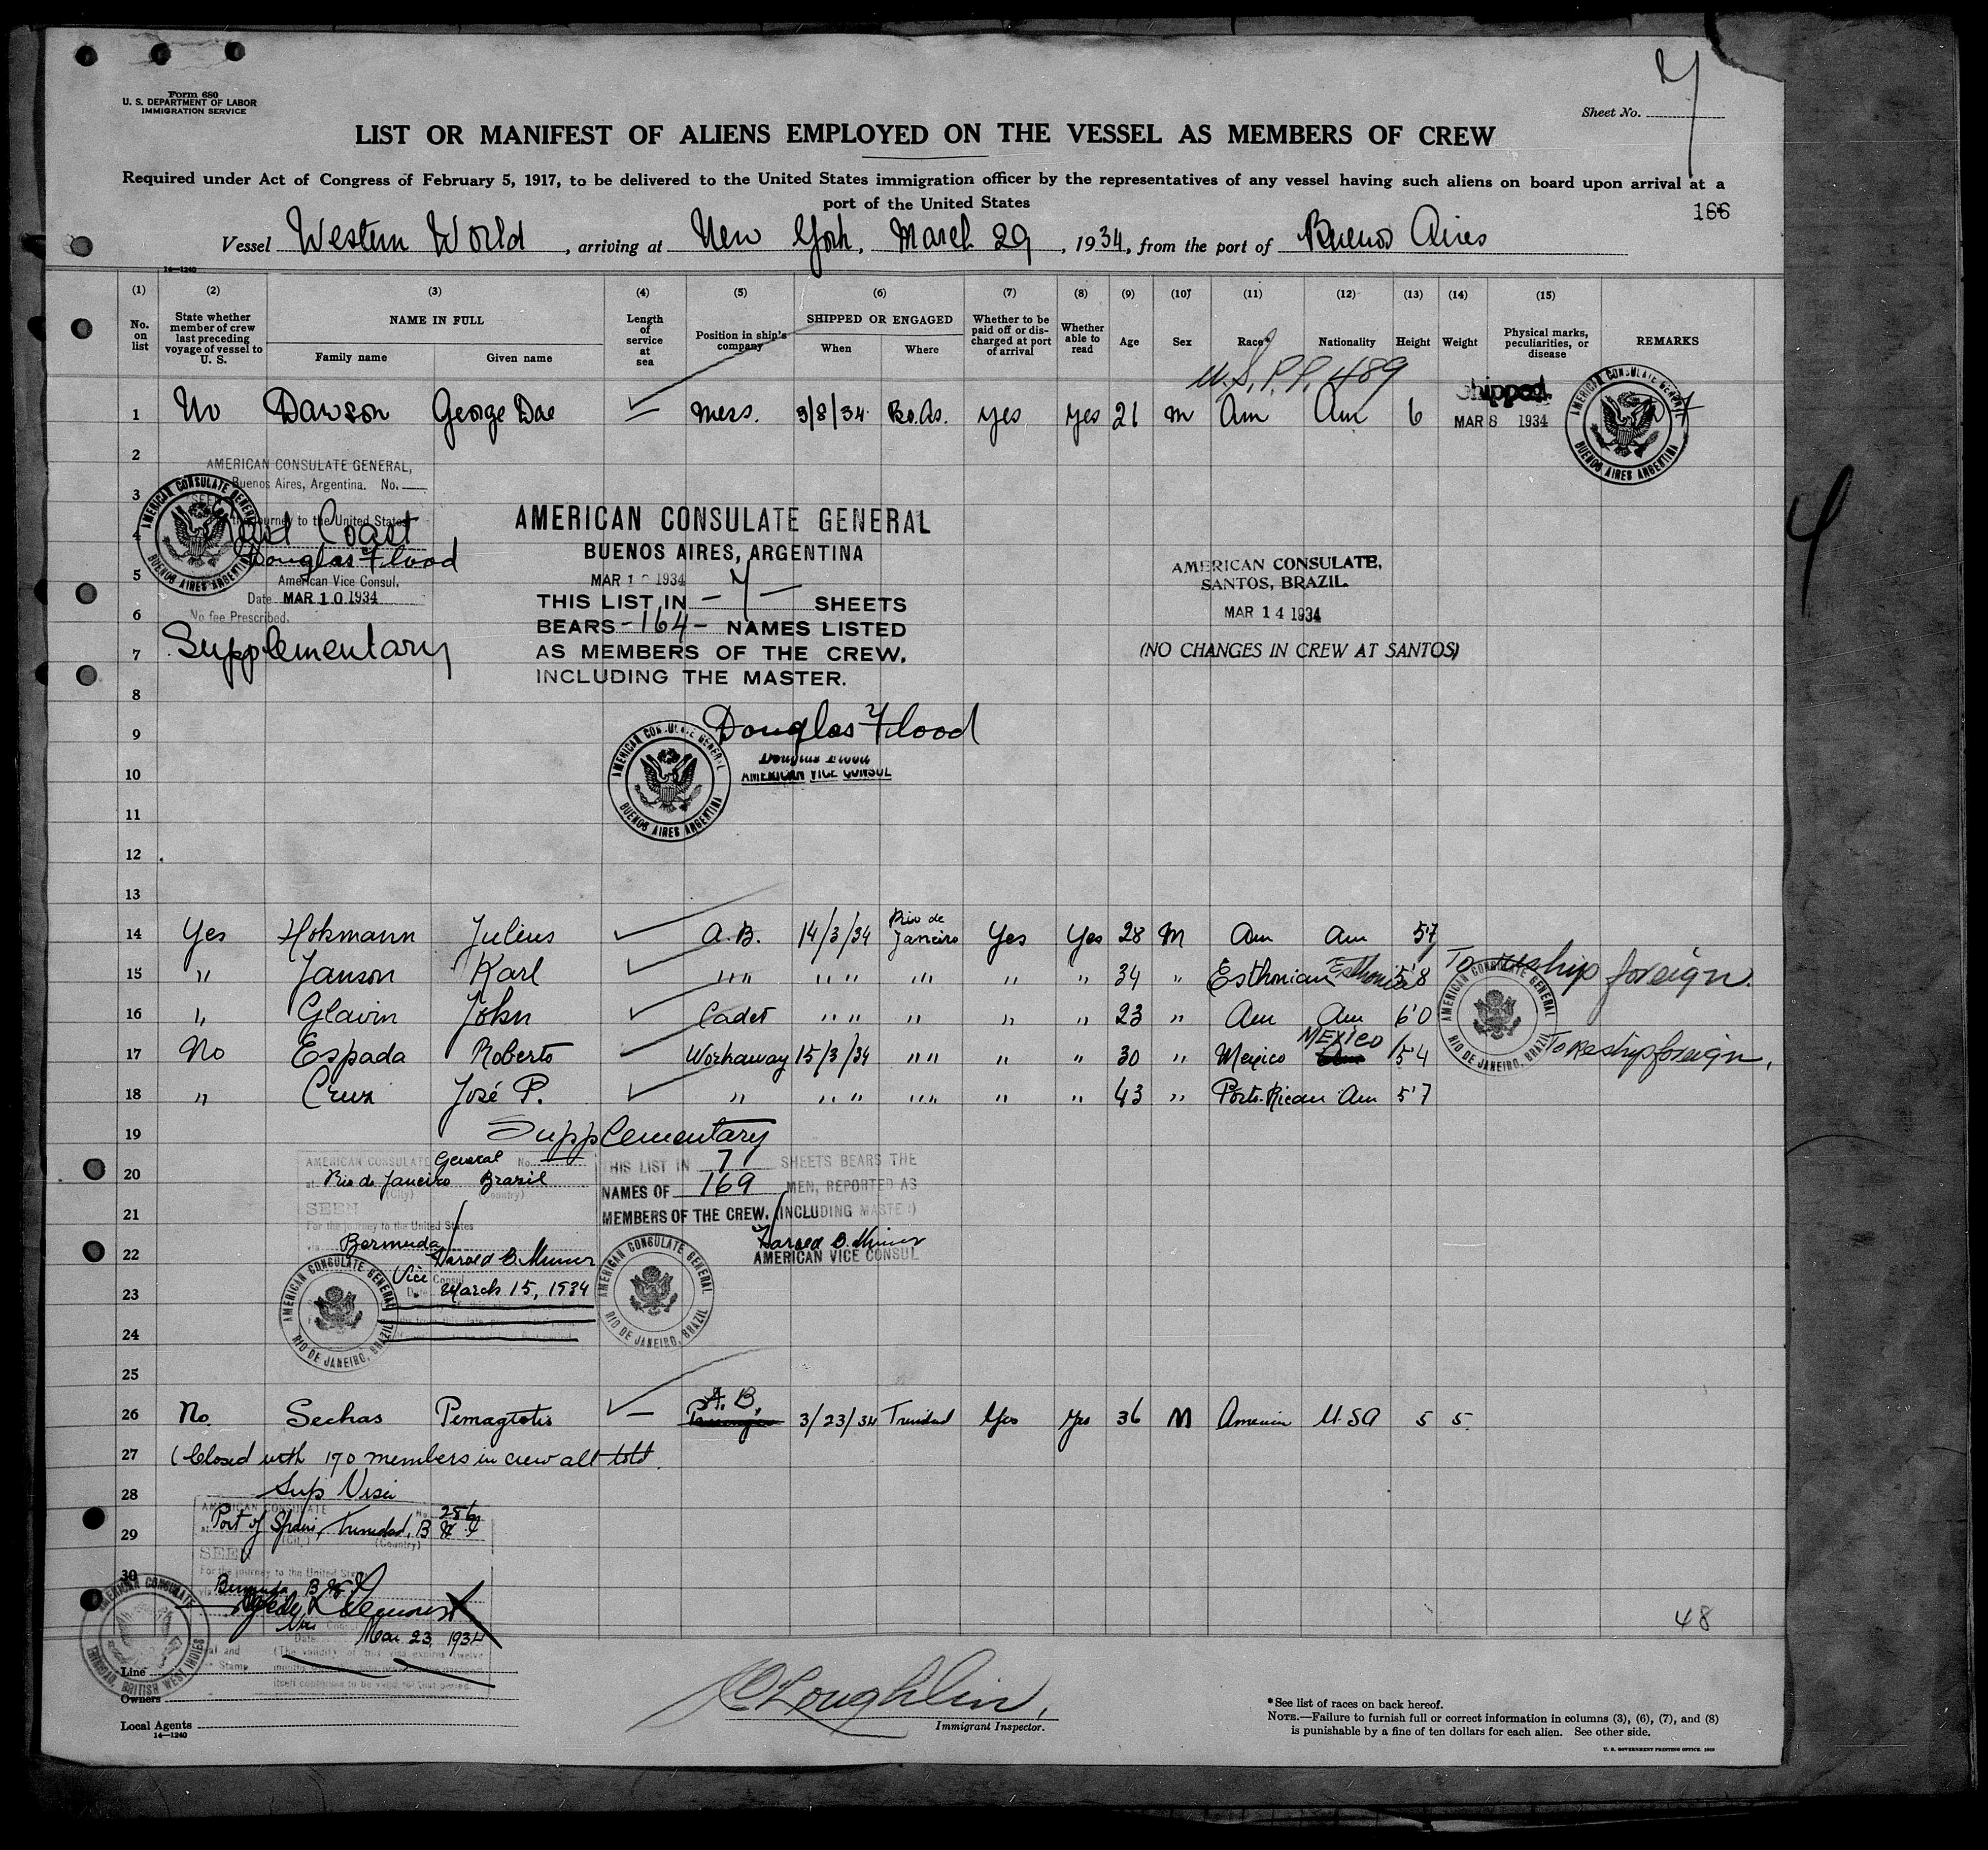 Form 680
U. S. DEPARTMENT OF LABOR
IMMIGRATION SERVICE
Sheet No. 7
LIST OR MANIFEST OF ALIENS EMPLOYED ON THE VESSEL AS MEMBERS OF CREW
Required under Act of Congress of February 5, 1917, to be delivered to the United States immigration officer by the representatives of any vessel having such aliens on board upon arrival at a
port of the United States
166
Vessel Western World, arriving at New York, March 29, 1934, from the port of Buenos Aires
14—1240
(1) (2) (3) (4) (5) (6) (7) (8) (9) (10) (11) (12) (13) (14) (15)
No. on list
State whether member of crew last preceding voyage of vessel to U. S.
NAME IN FULL
Family name Given name
Length of service at sea
Position in ship's company
SHIPPED OR ENGAGED
When Where
Whether to be paid off or discharged at port of arrival
Whether able to read
Age
Sex
Race*
Nationality
Height
Weight
Physical marks, peculiarities, or disease
REMARKS
U.S.P.P. 489
1 No Dawson George Dae — Mess. 3/8/34 Bs.As. yes yes 21 m Am Am 6 Shipped MAR 8 1934
AMERICAN CONSULATE GENERAL BUENOS AIRES ARGENTINA
2
3
4
5
6
7
8
9
10
11
12
13
AMERICAN CONSULATE GENERAL,
Buenos Aires, Argentina. No.
SEEN
the journey to the United States
East Coast
Douglas Flood
American Vice Consul.
Date MAR 10 1934
No fee Prescribed.
Supplementary
AMERICAN CONSULATE GENERAL BUENOS AIRES ARGENTINA
AMERICAN CONSULATE GENERAL
BUENOS AIRES, ARGENTINA
MAR 1 1934
THIS LIST IN - 7 - SHEETS
BEARS -164- NAMES LISTED
AS MEMBERS OF THE CREW,
INCLUDING THE MASTER.
Douglas Flood
Douglas Flood
AMERICAN VICE CONSUL
AMERICAN CONSULATE GENERAL BUENOS AIRES ARGENTINA
AMERICAN CONSULATE,
SANTOS, BRAZIL.
MAR 14 1934
(NO CHANGES IN CREW AT SANTOS)
14 Yes Hokmann Julius A.B. 14/3/34 Rio de Janeiro Yes Yes 28 M Am Am 5'7
15 " Janson Karl "" "" "" " " 34 " Esthonian Esthonia 5'8 To reship foreign.
16 " Glavin John Cadet "" " " " 23 " Am Am 6'0
17 No Espada Roberto Workaway 15/3/34 "" " " 30 " Mexico MEXICO 5'4 To Reship foreign.
18 " Cruz José P. " "" "" " " 43 " Porto-Rican Am 5'7
AMERICAN CONSULATE GENERAL RIO DE JANEIRO, BRAZIL
19
20
21
22
23
24
25
Supplementary
AMERICAN CONSULATE General No.
at Rio de Janeiro Brazil
(City) (Country)
SEEN
For the journey to the United States
via Bermuda
Harold B. Minor
Vice Consul
Date March 15, 1934
AMERICAN CONSULATE GENERAL RIO DE JANEIRO, BRAZIL
THIS LIST IN 7 SHEETS BEARS THE
NAMES OF 169 MEN, REPORTED AS
MEMBERS OF THE CREW. (INCLUDING MASTER)
Harold B. Minor
AMERICAN VICE CONSUL
AMERICAN CONSULATE GENERAL RIO DE JANEIRO, BRAZIL
26 No. Sechas — A.B. 3/23/34 Trinidad Yes Yes 36 M American U.S.A 5 5
27 (Closed with 170 members in crew all told.
28 Sup Visa
29
30
AMERICAN CONSULATE No.
at Port of Spain, Trinidad, B W I
(City) (Country)
SEEN
For the journey to the United States
via Bermuda B W I
Vice Consul
Date Mar 23, 1934
(The validity of this visa expires twelve
AMERICAN CONSULATE TRINIDAD, BRITISH WEST INDIES
48
4
Line
Owners
Local Agents
14—1240
Immigrant Inspector.
*See list of races on back hereof.
NOTE.—Failure to furnish full or correct information in columns (3), (6), (7), and (8)
is punishable by a fine of ten dollars for each alien. See other side.
U. S. GOVERNMENT PRINTING OFFICE